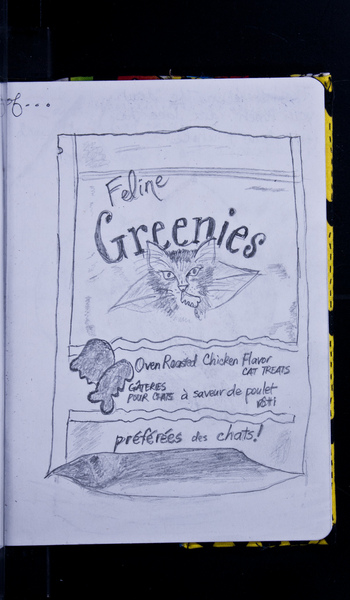 of...
Feline
Greenies
Oven Roasted Chicken Flavor
CAT TREATS
GÂTERIES
POUR CHATS à saveur de poulet
rôti
préférées des chats!